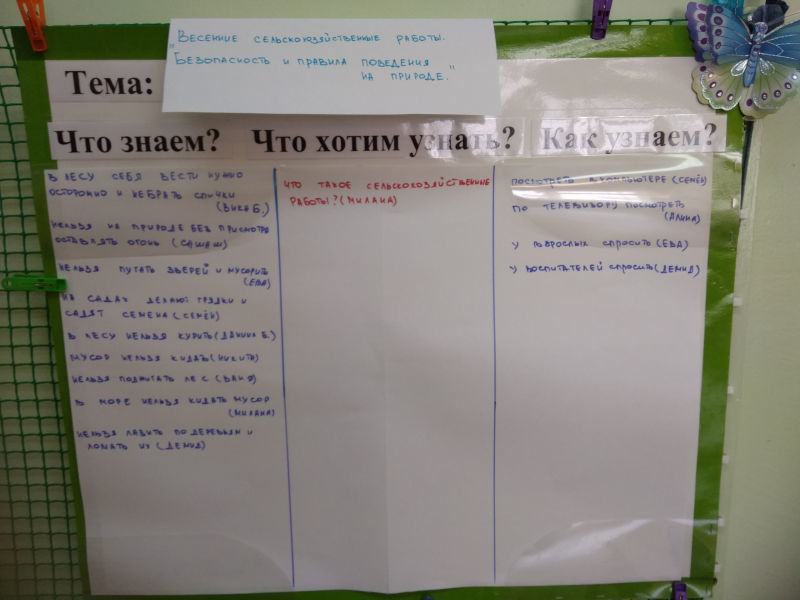 „Весенние сельскохозяйственные работы.
Безопасность и правила поведения
на природе."
Тема:
Что знаем?
Что хотим узнать?
Как узнаем?
В лесу себя вести нужно
осторожно и не брать спички
(Вика Б.)
Нельзя на природе без присмотра
оставлять огонь (Саша Ш)
Нельзя пугать зверей и мусорить
(Ева)
На садах делают грядки и
садят семена (Семён)
В лесу нельзя курить (Данил Б.)
Мусор нельзя кидать (Никита)
Нельзя поджигать лес (Ваня)
В море нельзя кидать мусор
(Милана)
Нельзя лазить по деревьям и
ломать их (Демид)
Что такое сельскохозяйственные
работы? (Милана)
Посмотреть в компьютере (Семён)
По телевизору посмотреть
(Алина)
У взрослых спросить (Ева)
У воспитателей спросить (Демид)